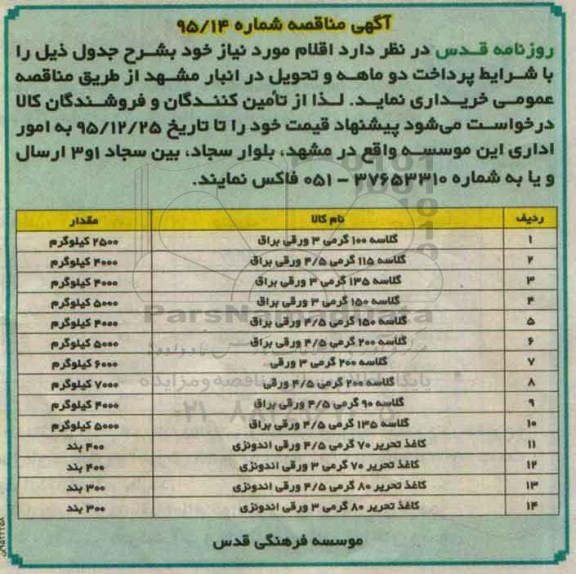 آگهی مناقصه شماره ۹۵/۱۴
روزنامه قدس در نظر دارد اقلام مورد نیاز خود بشرح جدول ذیل را
با شرایط پرداخت دو ماهه و تحویل در انبار مشهد از طریق مناقصه
عمومی خریداری نماید. لذا از تأمین کنندگان و فروشندگان کالا
درخواست می‌شود پیشنهاد قیمت خود را تا تاریخ ۹۵/۱۲/۲۵ به امور
اداری این موسسه واقع در مشهد، بلوار سجاد، بین سجاد ۱و۳ ارسال
و یا به شماره ۳۷۶۵۳۳۱۰ – ۰۵۱ فاکس نمایند.
ردیف نام کالا مقدار
۱ گلاسه ۱۰۰ گرمی ۳ ورقی براق ۲۵۰۰ کیلوگرم
۲ گلاسه ۱۱۵ گرمی ۴/۵ ورقی براق ۴۰۰۰ کیلوگرم
۳ گلاسه ۱۳۵ گرمی ۳ ورقی براق ۴۰۰۰ کیلوگرم
۴ گلاسه ۱۵۰ گرمی ۳ ورقی براق ۵۰۰۰ کیلوگرم
۵ گلاسه ۱۵۰ گرمی ۴/۵ ورقی براق ۴۰۰۰ کیلوگرم
۶ گلاسه ۲۰۰ گرمی ۴/۵ ورقی براق ۵۰۰۰ کیلوگرم
۷ گلاسه ۲۰۰ گرمی ۳ ورقی ۶۰۰۰ کیلوگرم
۸ گلاسه ۲۰۰ گرمی ۴/۵ ورقی ۷۰۰۰ کیلوگرم
۹ گلاسه ۹۰ گرمی ۴/۵ ورقی براق ۴۰۰۰ کیلوگرم
۱۰ گلاسه ۱۳۵ گرمی ۴/۵ ورقی براق ۵۰۰۰ کیلوگرم
۱۱ کاغذ تحریر ۷۰ گرمی ۴/۵ ورقی اندونزی ۴۰۰ بند
۱۲ کاغذ تحریر ۷۰ گرمی ۳ ورقی اندونزی ۴۰۰ بند
۱۳ کاغذ تحریر ۸۰ گرمی ۴/۵ ورقی اندونزی ۳۰۰ بند
۱۴ کاغذ تحریر ۸۰ گرمی ۳ ورقی اندونزی ۳۰۰ بند
موسسه فرهنگی قدس
ParsNamaddata